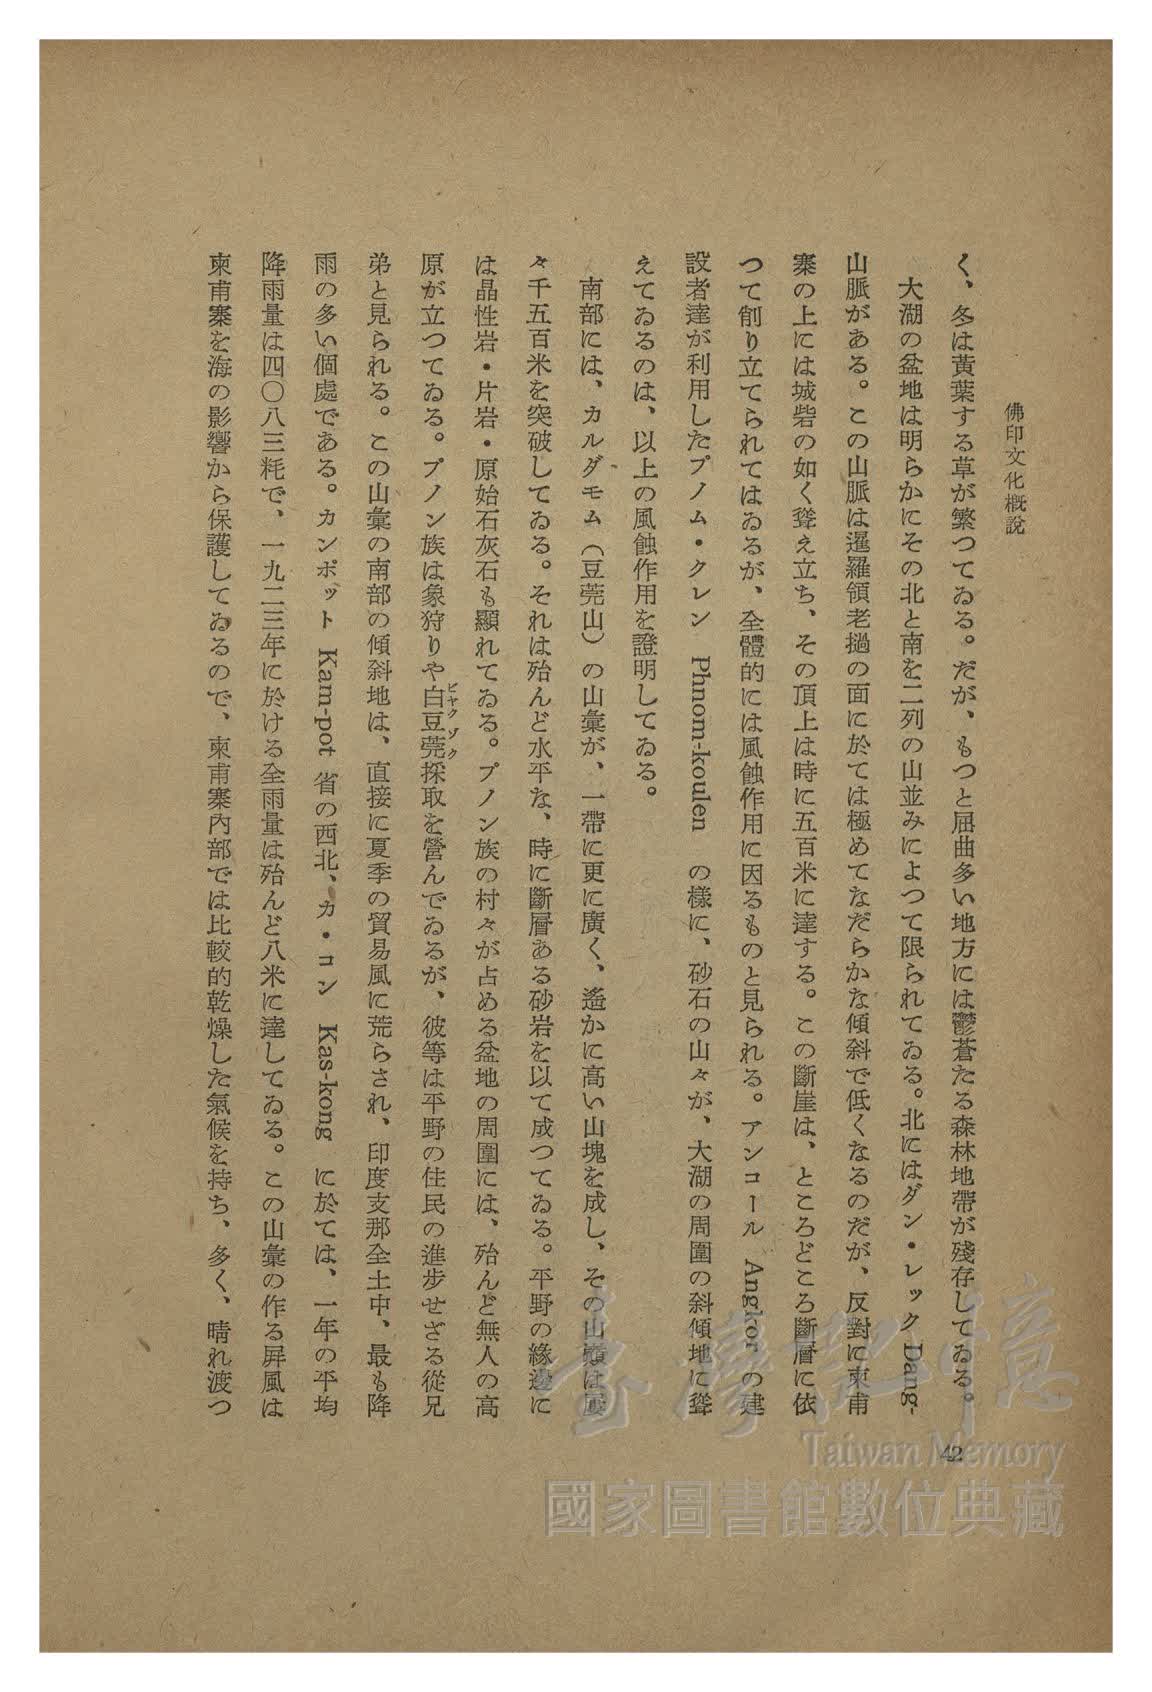 佛印文化概說
く、冬は黃葉する草が繁つてゐる。だが、もつと屈曲多い地方には鬱蒼たる森林地帶が殘存してゐる。
大湖の盆地は明らかにその北と南を二列の山並みによつて限られてゐる。北にはダン・レック Dang-
山脈がある。この山脈は暹羅領老撾の面に於ては極めてなだらかな傾斜で低くなるのだが、反對に柬甫
寨の上には城砦の如く聳え立ち、その頂上は時に五百米に達する。この斷崖は、ところどころ斷層に依
つて削り立てられてはゐるが、全體的には風蝕作用に因るものと見られる。アンコール Angkor の建
設者達が利用したプノム・クレン Phnom-koulen の樣に、砂石の山々が、大湖の周圍の斜傾地に聳
えてゐるのは、以上の風蝕作用を證明してゐる。
南部には、カルダモム（豆蔲山）の山彙が、一帶に更に廣く、遙かに高い山塊を成し、その山嶺は屢
々千五百米を突破してゐる。それは殆んど水平な、時に斷層ある砂岩を以て成つてゐる。平野の緣邊に
は晶性岩・片岩・原始石灰石も顯れてゐる。プノン族の村々が占める盆地の周圍には、殆んど無人の高
原が立つてゐる。プノン族は象狩りや白豆蔲採取を營んでゐるが、彼等は平野の住民の進步せざる從兄
ビヤクヅク
弟と見られる。この山彙の南部の傾斜地は、直接に夏季の貿易風に荒らされ、印度支那全土中、最も降
雨の多い個處である。カンポット Kam-pot 省の西北、カ・コン Kas-kong に於ては、一年の平均
降雨量は四〇八三粍で、一九二三年に於ける全雨量は殆んど八米に達してゐる。この山彙の作る屛風は
柬甫寨を海の影響から保護してゐるので、柬甫寨內部では比較的乾燥した氣候を持ち、多く、晴れ渡つ
42
臺灣記憶
Taiwan Memory
國家圖書館數位典藏